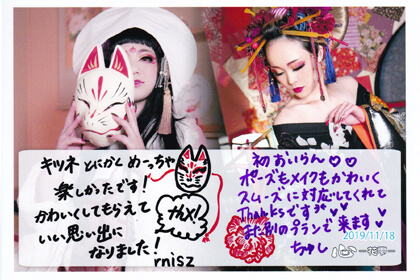 キツネとにかく めっちゃ
楽しかったです！
かわいくしてもらえて
いい思い出に
なりました！
rnisz
初おいらん♡♡
ポーズもメイクもかわいく
スムーズに対応してくれて
Thanksですが♡♡
また別のプランで来ます♡
ちゅし
2019/11/18
心-花雫-